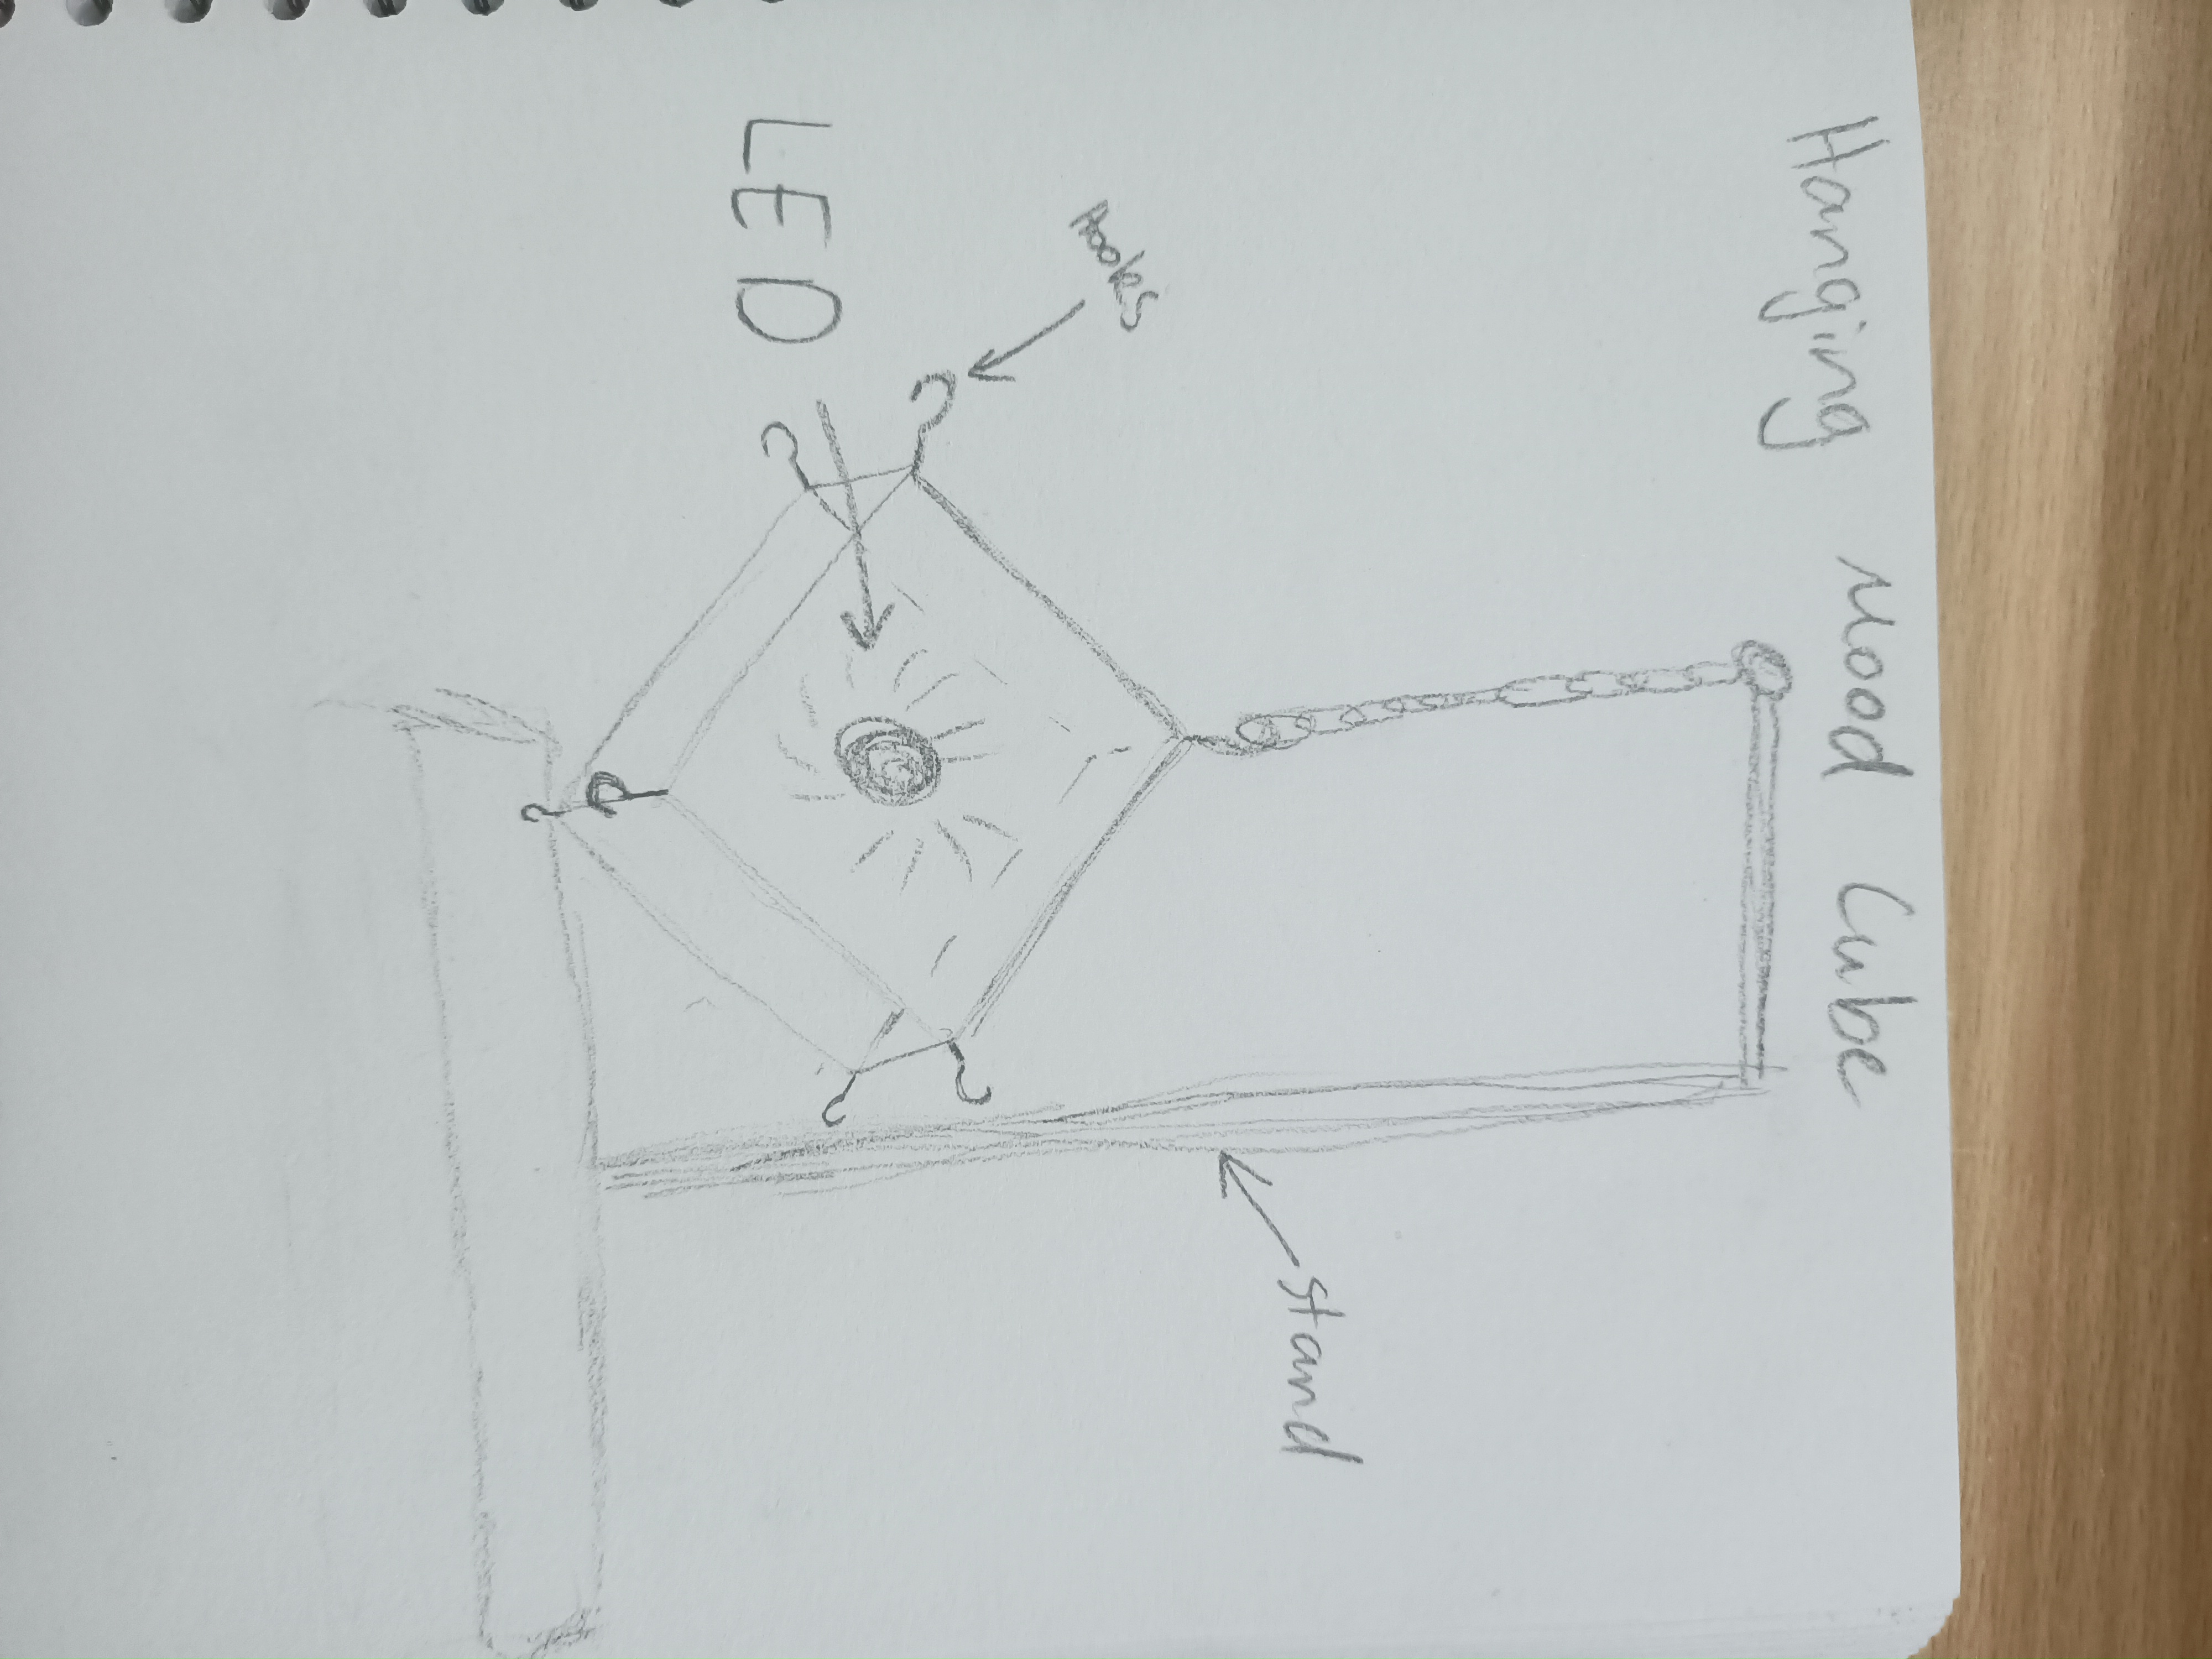 Hanging Mood Cube
stand
Hooks
LED